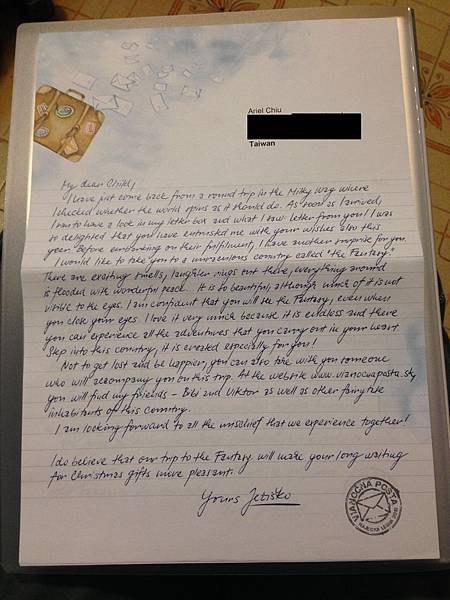 Ariel Chiu
Taiwan
My dear Child,
I have just come back from a round trip in the Milky Way where
I checked whether the world spins as it should do. As soon as I arrived,
I ran to have a look in my letter box and what I saw? Letter from you! I was
so delighted that you have entrusted me with your wishes also this
year. Before embarking on their fulfilment, I have another surprise for you.
I would like to take you to a miraculous country called "the Fantasy."
There are exciting smells, laughter rings out there, everything around
is flooded with wonderful peace. It is so beautiful, although much of it is not
visible to the eyes. I am confident that you will see the Fantasy, even when
you close your eyes. I love it very much because it is endless and there
you can experience all the adventures that you carry out in your heart.
Step into this country, it is created especially for you!
Not to get lost and be happier, you can also take with you someone
who will accompany you on this trip. At the website www.vianocnaposta.sk
you will find my friends - Bibi and Viktor as well as other fairytale
inhabitants of this country.
I am looking forward to all the mischief that we experience together!
I do believe that our trip to the Fantasy will make your long waiting
for Christmas gifts more pleasant.
Yours Ježiško
VIANOČNÁ POŠTA